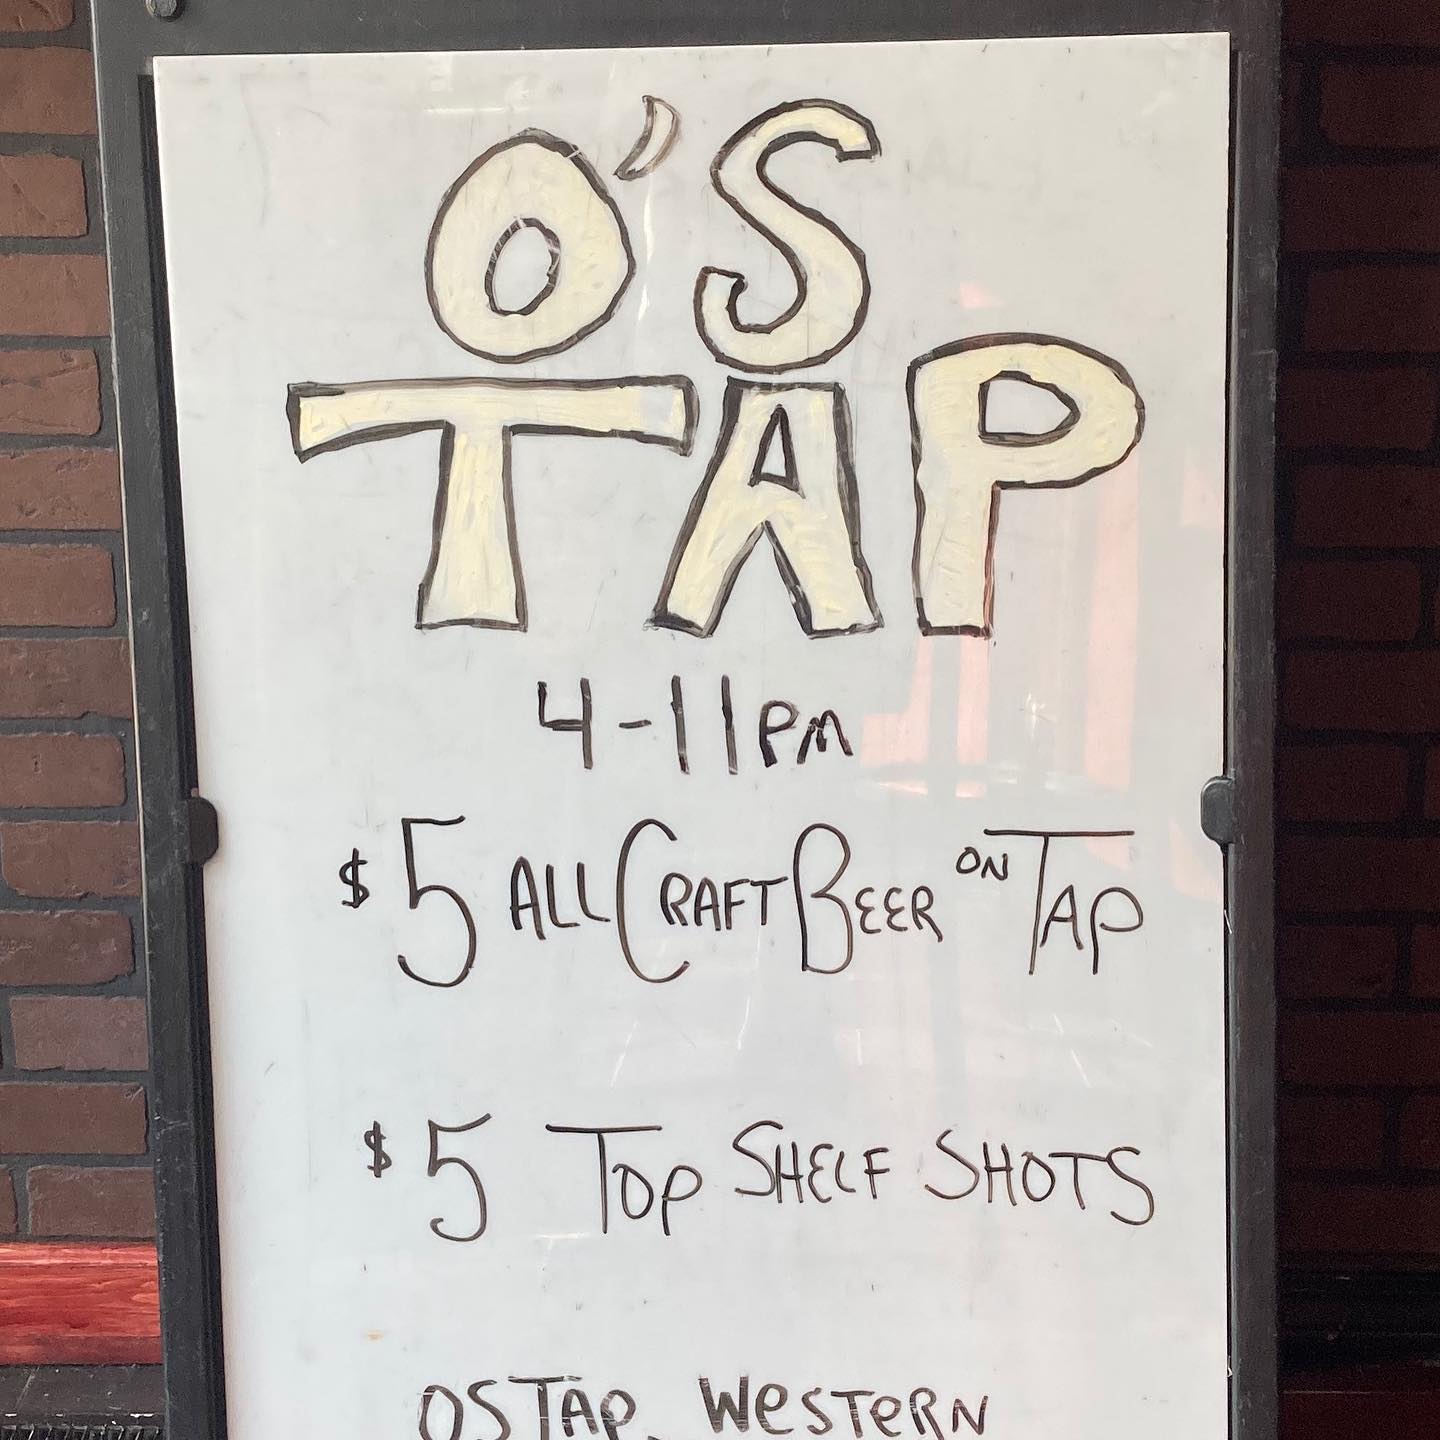 O'S
TAP
4-11PM
$5 ALL CRAFT BEER ON TAP
$5 TOP SHELF SHOTS
OSTAP_WESTERN